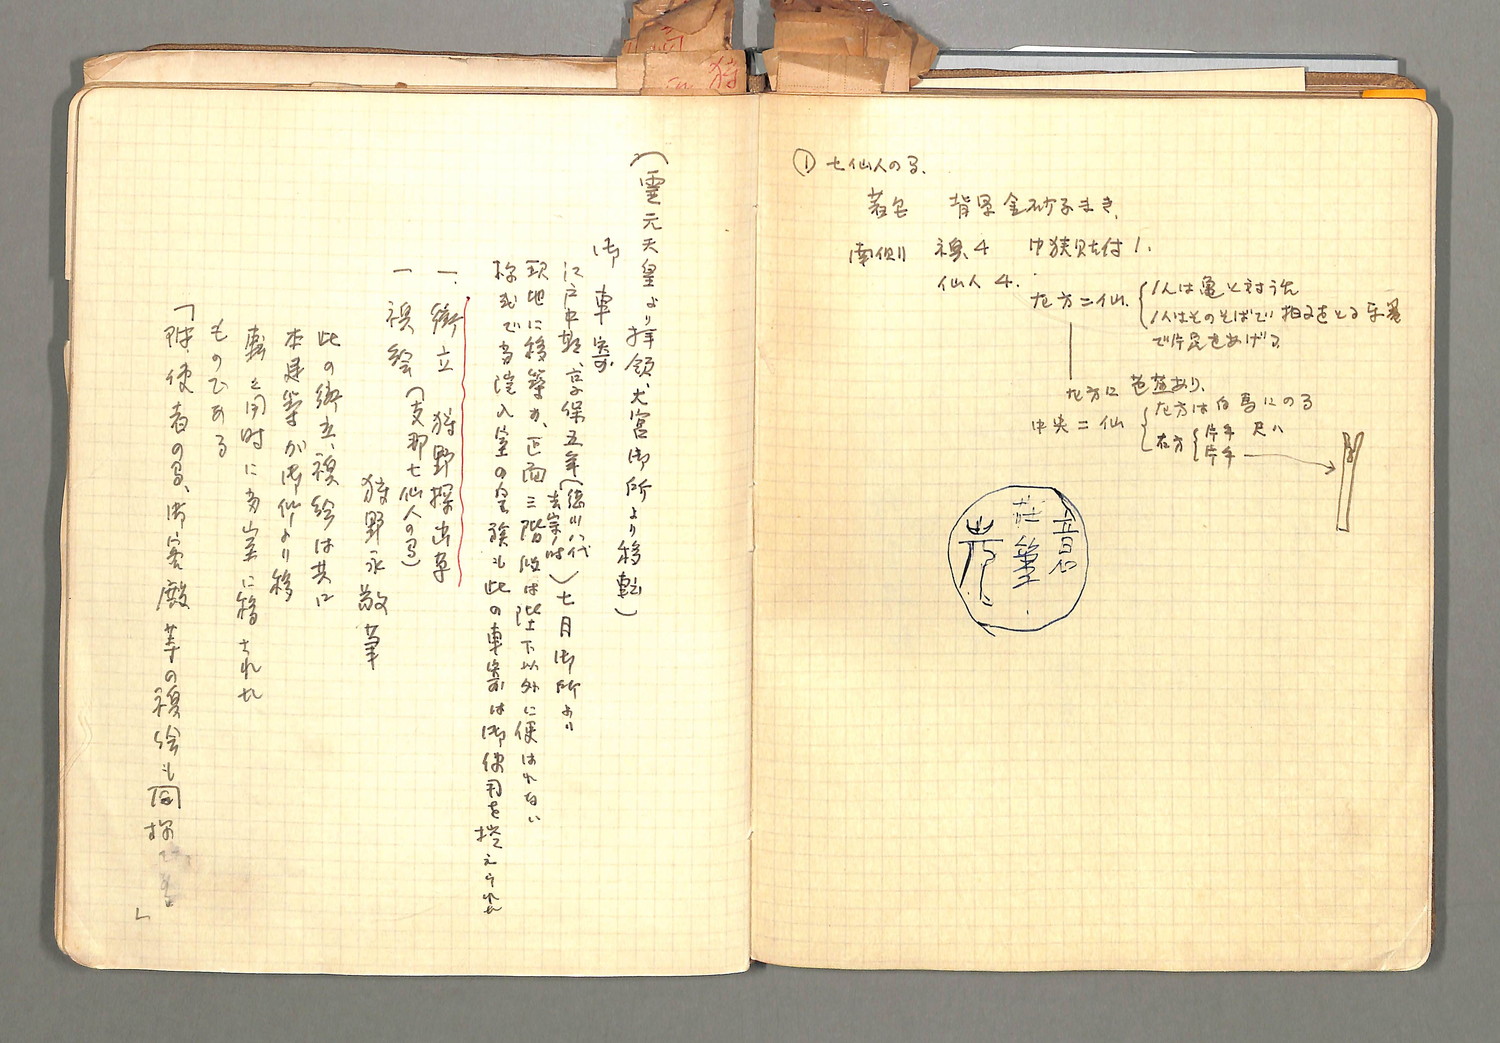 (霊元天皇より拝領、大宮御所より移転)
御車寄
江戸中期、享保五年(徳川八代吉宗時)七月御所より
現地に移築す、正面三階段は陛下以外に使はれない
様式で当院入室の皇族も此の車寄は御使用を控えられた
一、衝立 狩野探幽筆
一 襖絵(支那七仙人の図)
狩野永敬筆
此の衝立、襖絵は共に
本建築が御所より移
転と同時に当室に移された
ものである
「附、使者の間、御客殿等の襖絵も同様で
」
① 七仙人の図、
著色 背景金砂子まき、
南側 襖4 巾狭貼付1.
仙人4.
左方二仙. 1人は亀と対う
1人はそのそばで拍子をとる
で片足をあげる
左方に芭蕉あり、
中央二仙 左方は白馬にのる
右方 片手 尺八
片手
狩